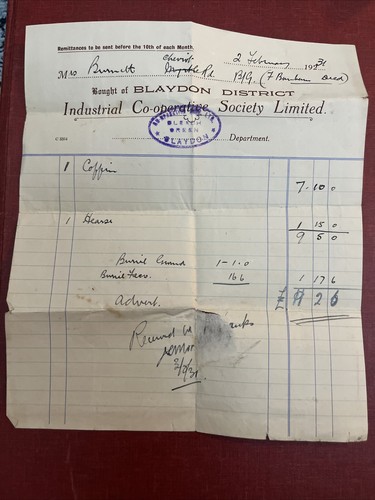 Remittances to be sent before the 10th of each Month.
Cheviot
2 February 1931
Mrs Burnett Myrtle Rd. B/G. (7 Bamburn area)
Bought of BLAYDON DISTRICT
Industrial Co-operative Society Limited.
Department.
GREEN
BLAYDON
1 Coffin 7 10 0
1 Hearse 1 15 0
9 5 0
Burial Ground 1-1-0
Burial Fees 16 6 1 17 6
Advert.
£11 2 6
Received
2/2/31